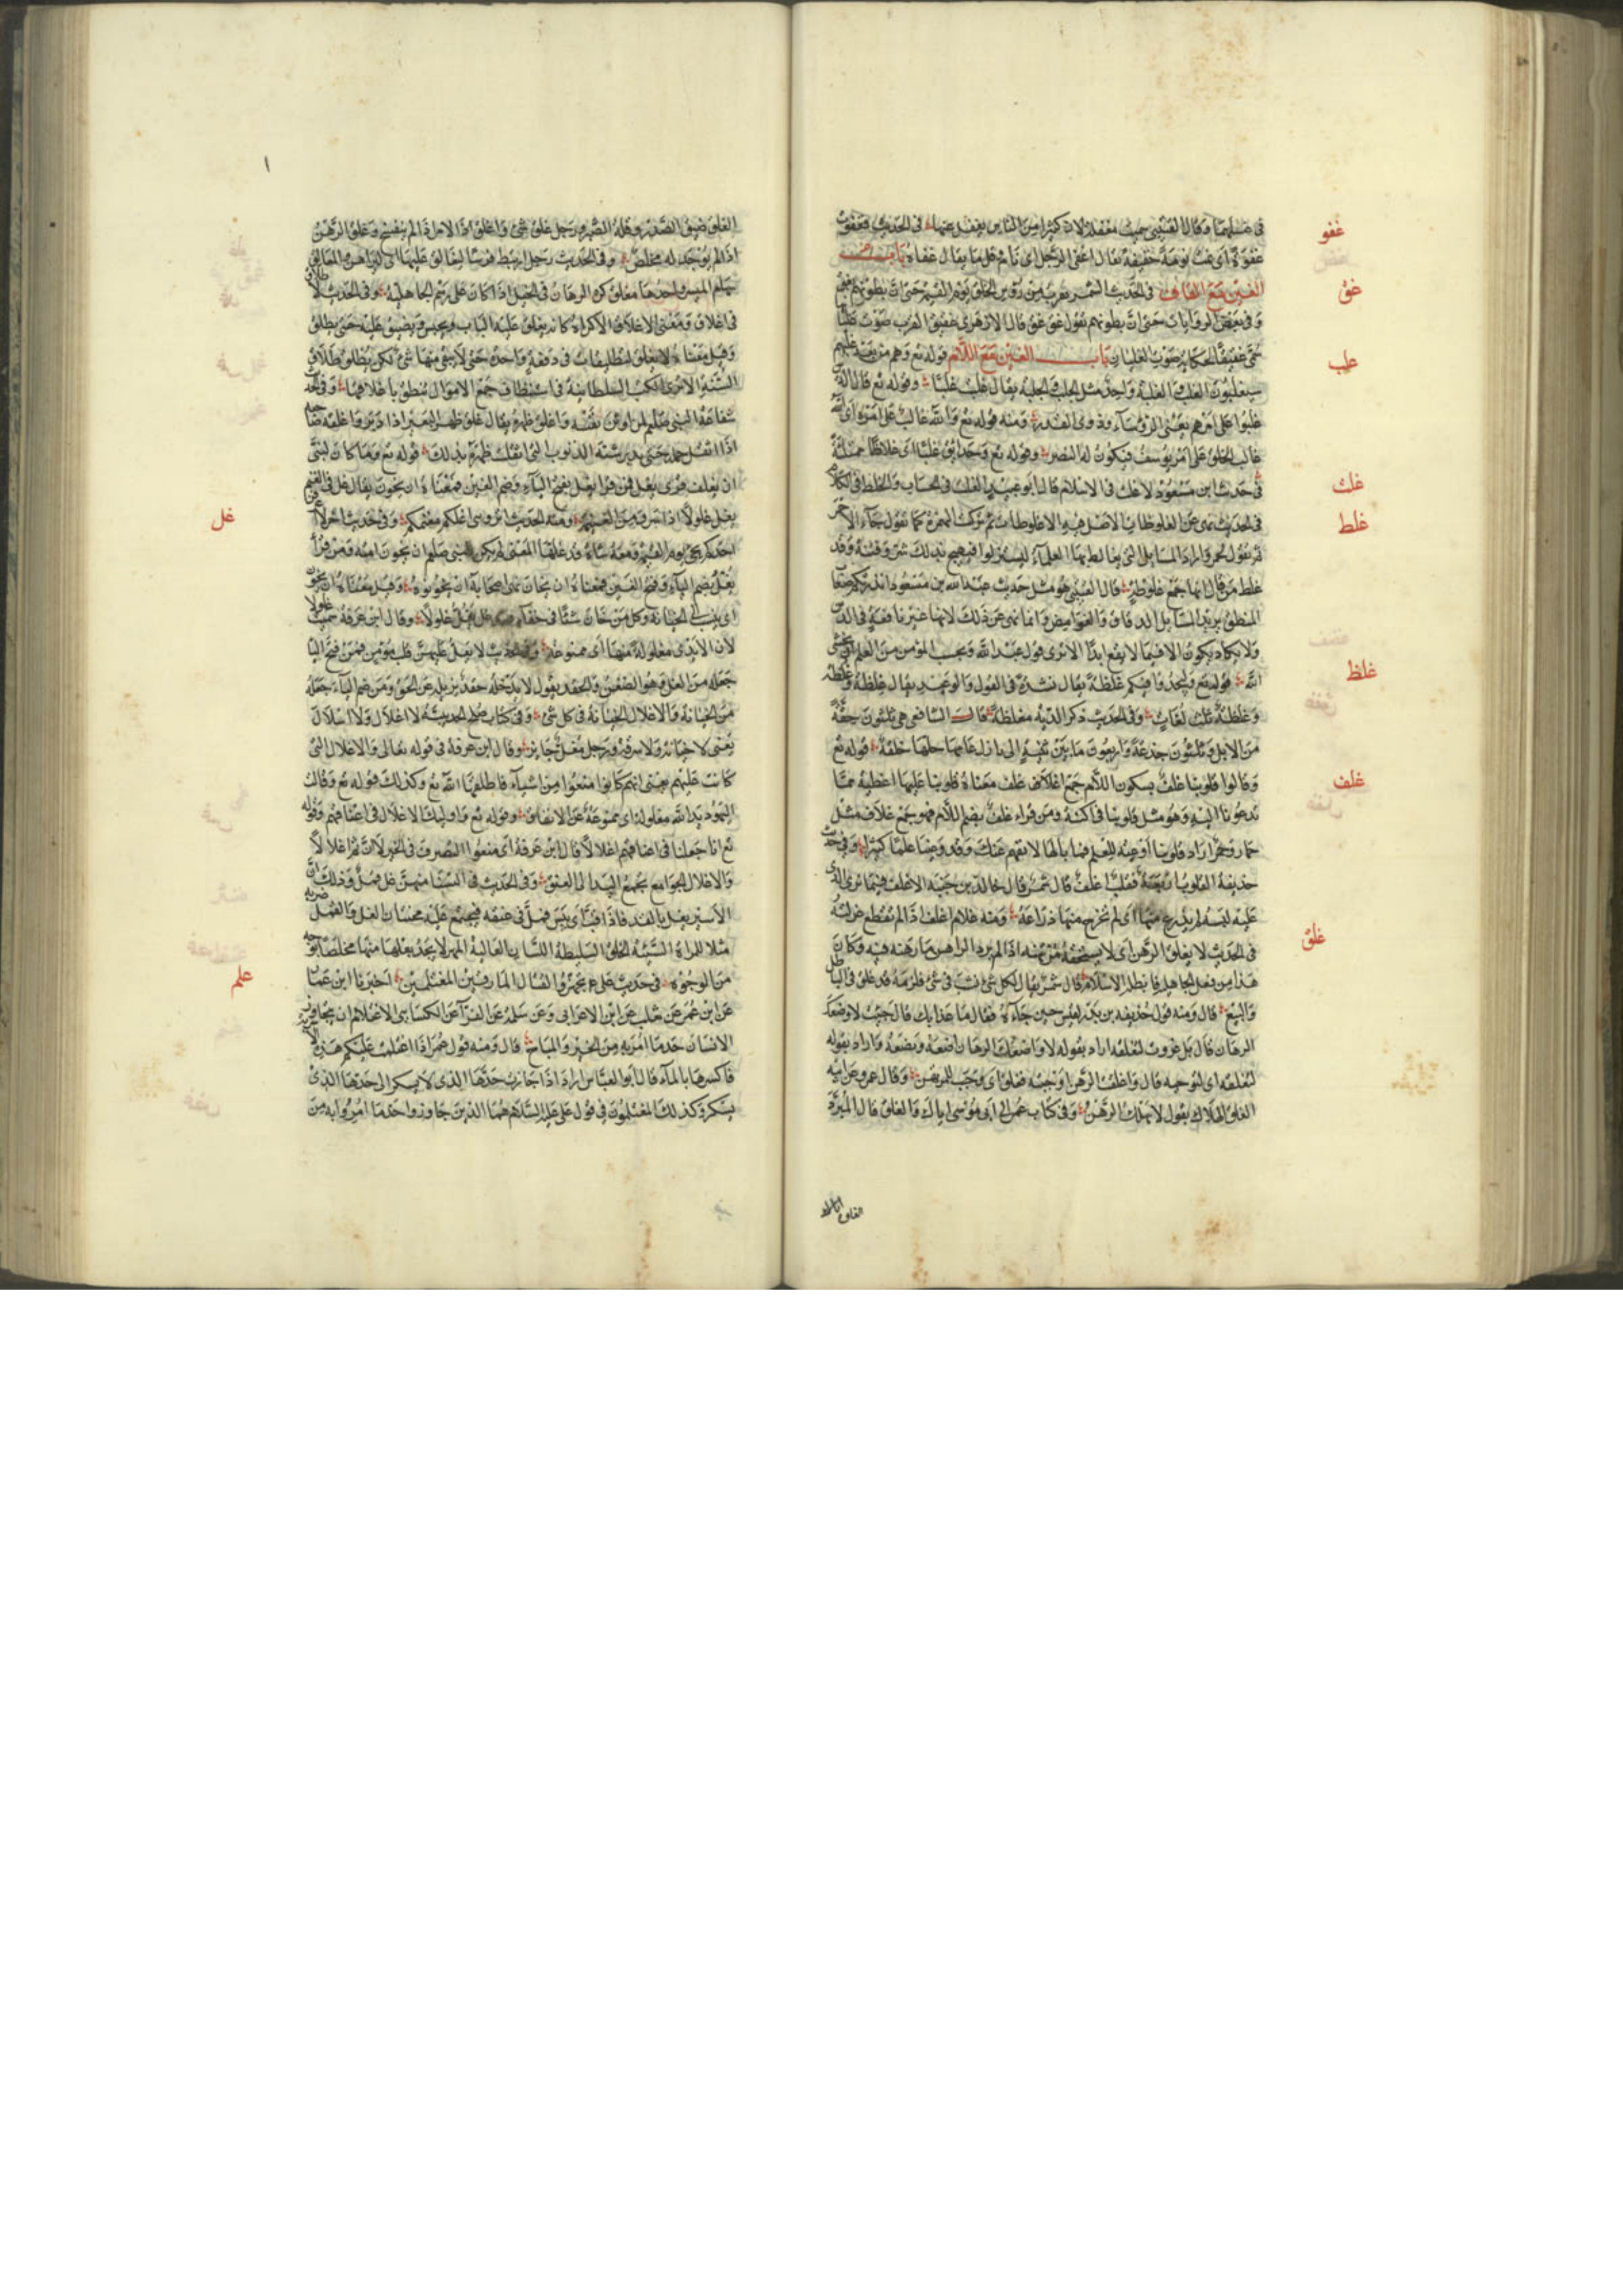 غفو
في غسلهما وقال القتيبي حديث مغفلا لان كثيرا من الناس يغفل عنها وفي الحديث فغفوت
غفوة أي نمت نومة خفيفة يقال اغفى الرجل اي نام قل ما يقال غفا باب
غق
الغين مع القاف في الحديث ان الشمس تقرب من رؤس الخلق يوم القيمة حتى ان بطونهم تغق
وفي بعض الروايات حتى ان بطونهم تقول غق غق قال الازهري غقيق القرب صوت
غلب
حكاية صوت الغليان باب الغين مع اللام قوله تع وهم من بعد غلبهم
سيغلبون الغلب والغلبة واحد مثل الجلب والجلبة يقال غلب غلبا وقوله تع قال الذين
غلبوا على امرهم يعني الرؤساء وذوي القدرة ومنه قوله تع والله غالب على امره أي
غالب الخلق على امر يوسف فيكون له النصر وقوله تع وحدايق غلبا اي غلاظا ممتلئة
غلت
في حديث ابن مسعود لا غلت في الاسلام قال ابو عبيد الغلت في الحساب والغلط في الكلام
غلط
في الحديث نهى عن الغلوطات الاصل فيه الاغلوطات ثم تركت الهمزة كما تقول جاء الاحمر
ثم تقول لحمر واراد المسايل التي يغالط بها العلماء ليستزلوا فيهيج بذلك شر وفتنة وقد
غلط من قال انها جمع غلوطة قال القتيبي هو مثل حديث عبد الله بن مسعود انذرتكم صعاب
المنطق يريد المسايل الدقاق والغوامض وانما نهى عن ذلك لانها غير نافعة في الدين
ولا يكاد يكون الا فيما لا يقع ابدا الا ترى قول عبد الله وبحسب المؤمن من العلم ان يخشى
غلظ
الله قوله تع وليجدوا فيكم غلظة يقال شدة في القول والوعيد يقال غلظة وغلظة
وغلظة ثلث لغات وفي الحديث ذكر الدية مغلظة قال الشافعي هي ثلثون حقة
من الابل وثلثون جذعة واربعون ما بين ثنية الى بازل عامها كلها خلفة قوله تع
غلف
وقالوا قلوبنا غلف بسكون اللام جمع اغلاف غلف معناه قلوبنا عليها اغطية مما
تدعونا اليه وهو مثل قلوبنا في اكنة ومن قراء غلف بضم اللام فهو جمع غلاف مثل
حمار وحمر اراد قلوبنا اوعية للعلم فما بالها لا تفهم عنك وقد وعينا علما كثيرا وفي حديث
حذيفة القلوب اربعة فقلب اغلف قال شمر قال خالد بن جنبة الاغلف فيما نرى الذي
عليه لبسة لم يدرع منها أي لم تخرج منها ذراعه ومنه غلام اغلف اذا لم تقطع غرلته
غلق
في الحديث لا يغلق الرهن اي لا يستحقه مرتهنه اذا لم يرد الراهن ما رهنه فيه وكان
هذا من فعل الجاهلية فابطله الاسلام قال شمر يقال لكل شئ نشب في شئ فلزمه قد غلق في الباطل
والبيع قال ومنه قول حذيفة بن بدر لقيس حين جاءه فقال ما غدا بك قال جئت لاواضعك
الرهان قال بل غدوت لتغلقه اراد بقوله لاواضعك الرهان اضعه وتضعه واراد بقوله
لتغلقه اي لتوجبه قال واغلقت الرهن اوجبته فغلق اي وجب للمرتهن وقال عمرو عن ابيه
الغلق الهلاك يقول لا يهلك الرهن وفي كتاب عمر الى ابي موسى اياك والغلق قال المبرد
الغلق ضيق الصدر وقلة الصبر ورجل غلق سئ واغلق اذا الامر اذا لم ينفسح وغلق الرهن
اذا لم يوجد له مخلص وفي الحديث رجل ارتبط فرسا ليغالق عليها أي ليراهن والمغالق
سهام الميسر واحدها مغلق كره الرهان في الخيل اذا كان على رسم الجاهلية وفي الحديث لا طلاق
في اغلاق ومعنى الاغلاق الاكراه كانه يغلق عليه الباب ويحبس ويضيق عليه حتى يطلق
وقيل معناه لا يغلق التطليقات في دفعة واحدة حتى لا يبقى منها شئ لكن يطلق طلاق
السنة الاخرى الكتب السلطانية في استنظاف جميع الاموال تنطق باغلاقها وفي الحديث
شفاعة النبي صلعم لمن اوثق نفسه واغلق ظهره يقال غلق ظهر البعير اذا دبر واغلقه صاحبه
اذا اثقل حمله حتى يدبر شبه الذنوب التي اثقلت ظهره بذلك قوله تع وما كان لنبي
غل
ان يغل قرئ يغل فمن قرا يغل بفتح الياء وضم الغين فمعناه ان يخون يقال غل في الغنيمة
يغل غلولا اذا سرق من الغنيمة ومنه الحديث
احدكم يجئ يوم القيمة ومعه شاة قد غلها المعنى لم يكن للنبي صلعم ان يخون امته ومن قرأ
يغل بضم الياء وفتح الغين فمعناه ان يخان نهى اصحابه ان يخونوه وقيل معناه ان يخون
اي ينسب الى الخيانة وكل من خان شئا في خفاء فقد غل يغل غلولا وقال ابن عرفة سميت غلولا
لان الايدي مغلولة منها أي ممنوعة وفي الحديث لا يغل عليهن قلب مؤمن فمن فتح اليا
جعله من الغل وهو الضغن والحقد يقول لا يدخله حقد يزيله عن الحق ومن ضم الياء جعله
من الخيانة والاغلال الخيانة في كل شئ وفي كتاب صلح الحديبية لا اغلال ولا اسلال
يعني لا خيانة ولا سرقة ورجل مغل وقال ابن عرفة في قوله تعالى والاغلال التي
كانت عليهم يعني انهم كانوا منعوا من اشياء فاطلقها الله تع وكذلك قوله تع وقالت
اليهود يد الله مغلولة اي ممنوعة عن الانفاق وقوله تع واوليك الاغلال في اعناقهم وقوله
تع انا جعلنا في اعناقهم اغلالا قال ابن عرفة أي منعوا التصرف في الخير لا ان ثم اغلالا
والاغلال الجوامع تجمع اليد الى العنق وفي الحديث في النسا منهن غل قمل وذلك ان
الاسير يغل بالقد فاذا قب أي يبس قمل في عنقه فيجتمع عليه محنتان الغل والقمل ضربه
مثلا للمراة السيئة الخلق السليطة اللسان الغالية المهر لا يجد بعلها منها مخلصا بوجه
غلم
من الوجوه في حديث علي ع تجهزوا لقتال المارقين المغتلمين اخبرنا ابن عمار
عن ابن عمر عن ثعلب عن ابن الاعرابي وعن سلمة عن الفراء عن الكسائي الاغتلام ان يتجاوز
الانسان حد ما امر به من الخير والمباح قال ومنه قول عمر اذا اغتلمت عليكم هذه الاشربة
فاكسروها بالماء قال ابو العباس اراد اذا جازت حدها الذي لا يسكر الى حدها الذي
يسكر وكذلك المغتلمون في قول علي عليه السلام هم الذين جاوزوا حد ما امروا به من